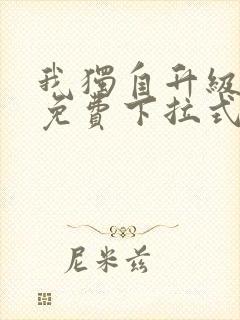 我獨自升級
免費下拉式
尼米兹